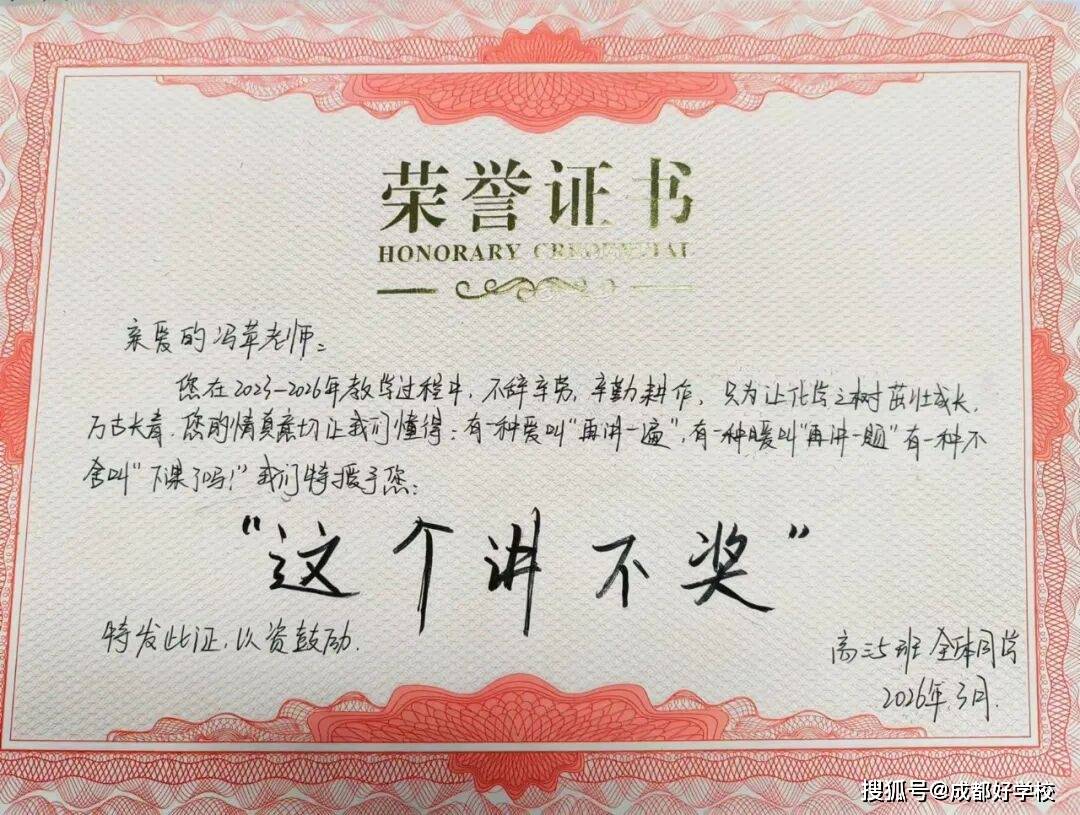 荣誉证书
HONORARY CREDENTIAL
亲爱的冯苹老师:
您在2023-2026年教学过程中,不辞辛劳,辛勤耕作,只为让化学之树茁壮成长,
万古长青.您的情真意切让我们懂得:有一种爱叫"再讲一遍",有一种暖叫"再讲一题"有一种不
舍叫"下课了吗!"我们特授予您:
"这个讲不奖"
特发此证,以资鼓励.
高三5班 全体同学
2026年.3月.
搜狐号@成都好学校